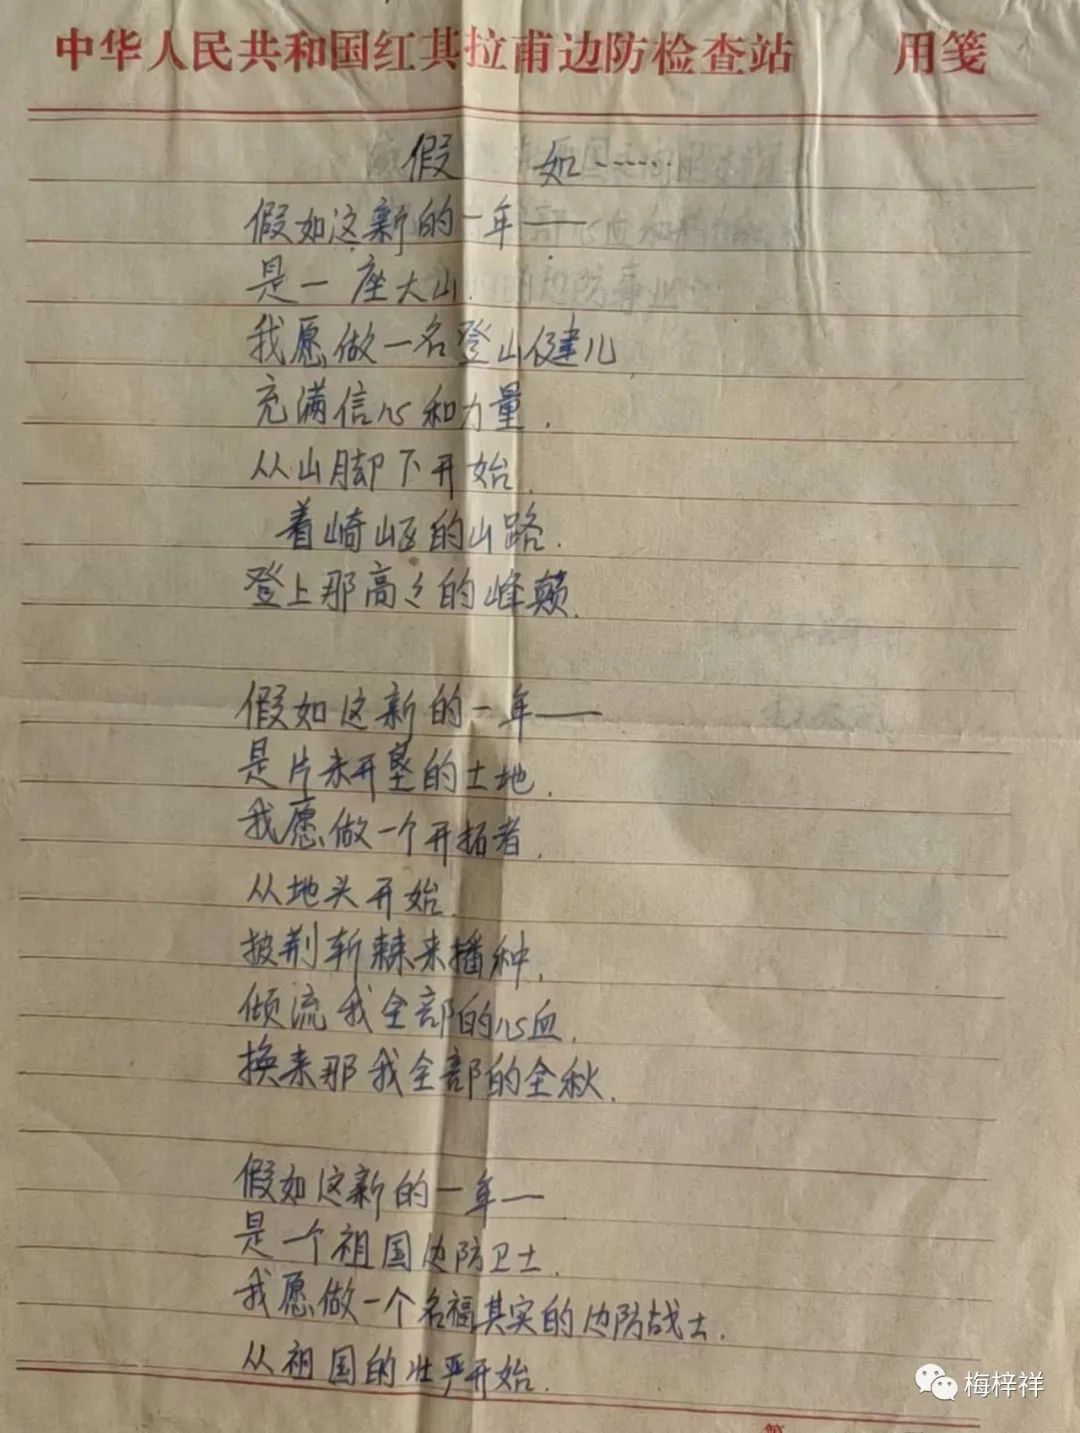 中华人民共和国红其拉甫边防检查站 用笺
假 如······
假如这新的一年——
是一座大山.
我愿做一名登山健儿,
充满信心和力量.
从山脚下开始.
着崎岖的山路.
登上那高々的峰颠.
假如这新的一年——
是片未开垦的土地.
我愿做一个开拓者.
从地头开始.
披荆斩棘来播种.
倾流我全部的心血.
换来那我全部的全秋.
假如这新的一年—
是一个祖国边防卫士.
我愿做一个名福其实的边防战士.
从祖国的壮严开始.
梅梓祥
第